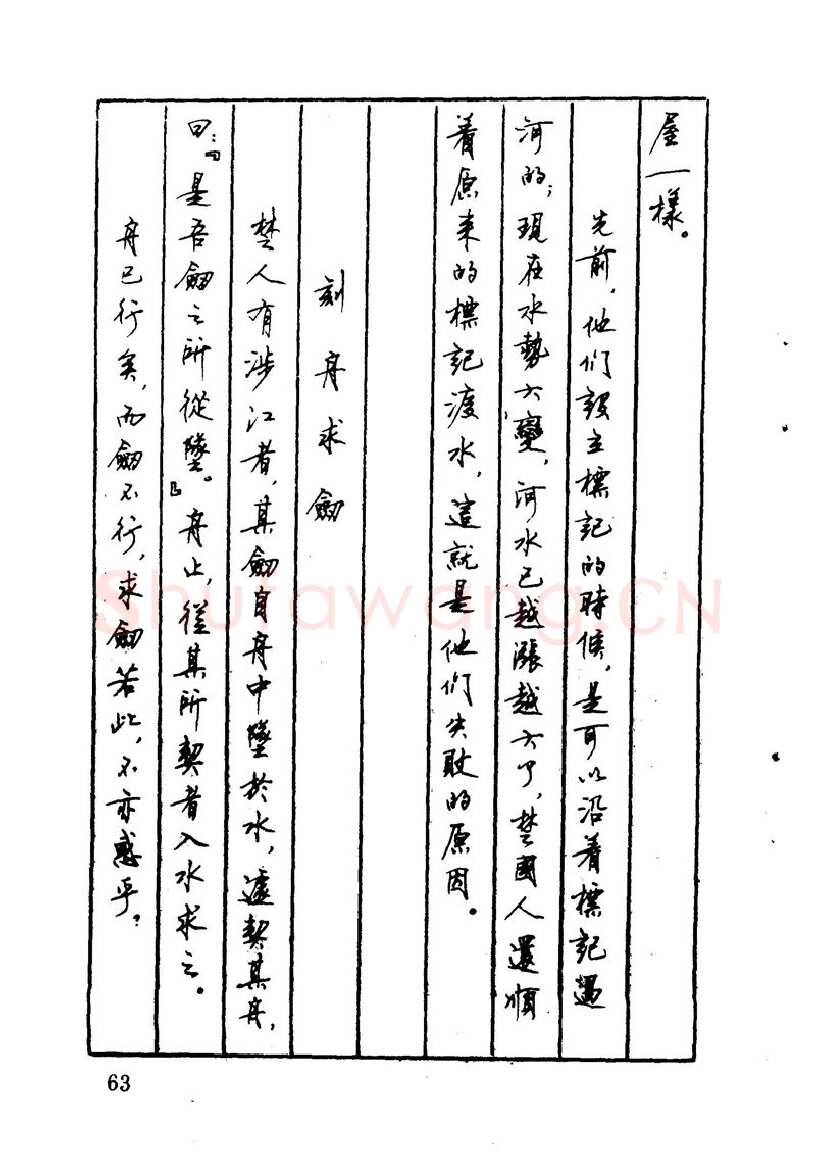 屋一樣。
先前，他們設立標記的時候，是可以沿着標記過
河的；現在水勢大變，河水已越漲越大了，楚國人還順
着原来的標記渡水，這就是他們失敗的原因。
刻舟求劍
楚人有涉江者，其劍自舟中墜於水，遽契其舟，
曰：『是吾劍之所從墜。』舟止，從其所契者入水求之。
舟已行矣，而劍不行，求劍若此，不亦惑乎？
63
Shufawang.CN